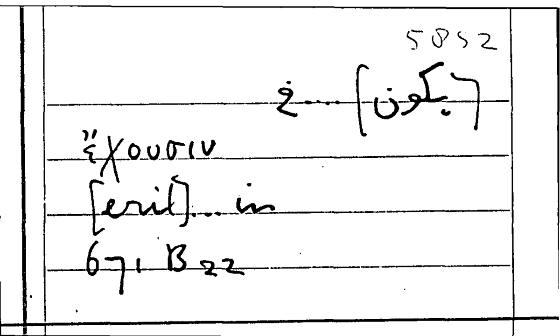 5852
[يكون] .... في
ἔχουσιν
[erit] ... in
671 B 22